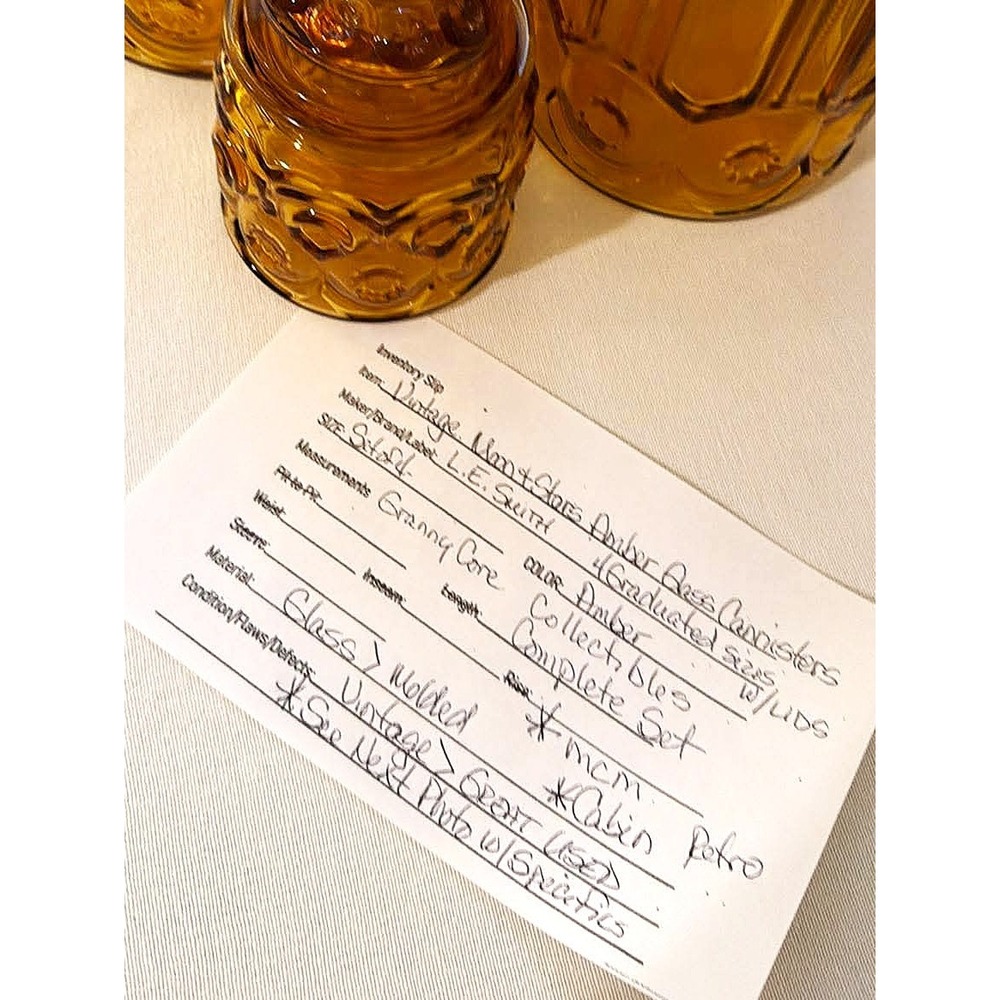 Inventory Slip
Item: Vintage Moon & Stars Amber Glass Cannisters
Maker/Brand/Label: L.E. SMITH 4 Graduated Sizes W/LIDS
SIZE: Set of 4 COLOR: Amber
Measurements Granny Core Collectibles
Pit to Pit: Length: Complete Set
Waist: Inseam: Rise: * mcm
Sleeve: *Cabin Retro
Material: Glass > Molded
Condition/Flaws/Defects: Vintage > GREAT USED
*See Next Photo w/Specifics